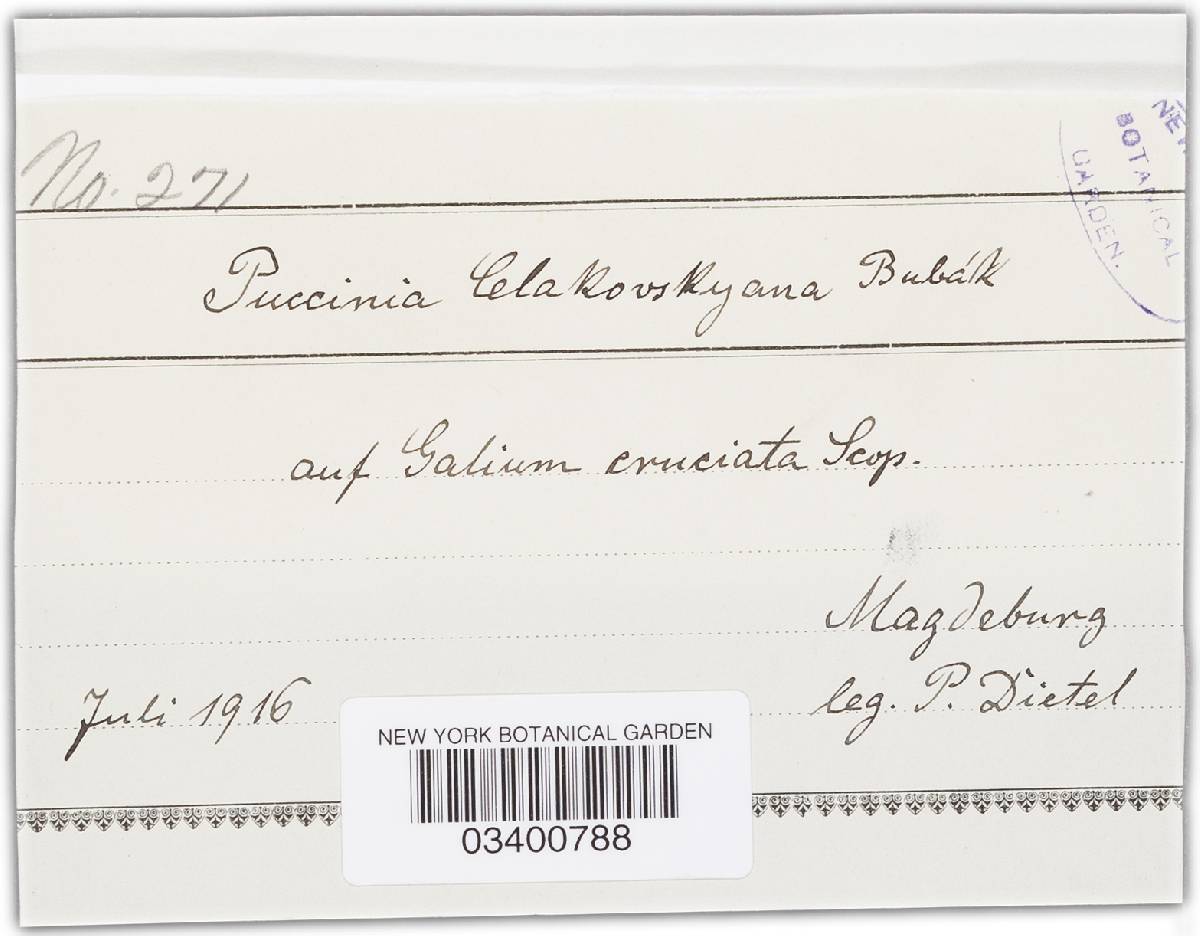 No. 271
NEW
BOTANICAL
GARDEN.
Puccinia Celakovskyana Bubák
auf Galium cruciata Scop.
Magdeburg
Juli 1916
leg. P. Dietel
NEW YORK BOTANICAL GARDEN
03400788